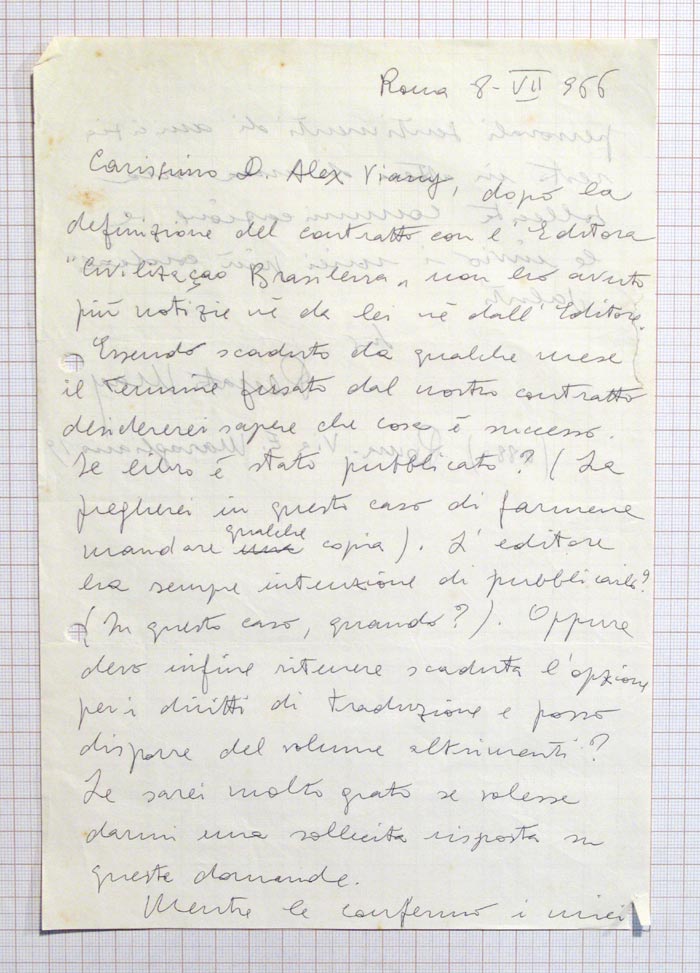 Roma 8-VII 966
Carissimo D. Alex Viany, dopo la
definizione del contratto con l'Editora
"Civilizaçao Brasileira„ non ho avuto
più notizie nè da lei nè dall'Editore.
Essendo scaduto da qualche mese
il termine fissato dal nostro contratto
desidererei sapere che cosa è successo.
Il libro è stato pubblicato? (La
pregherei in questo caso di farmene
mandare qualche copia). L'editore
ha sempre intenzione di pubblicarlo?
(In questo caso, quando?). Oppure
devo infine ritenere scaduta l'opzione
per i diritti di traduzione e posso
disporre del volume altrimenti?
Le sarei molto grato se volesse
darmi una sollecita risposta su
queste domande.
Mentre le confermo i miei